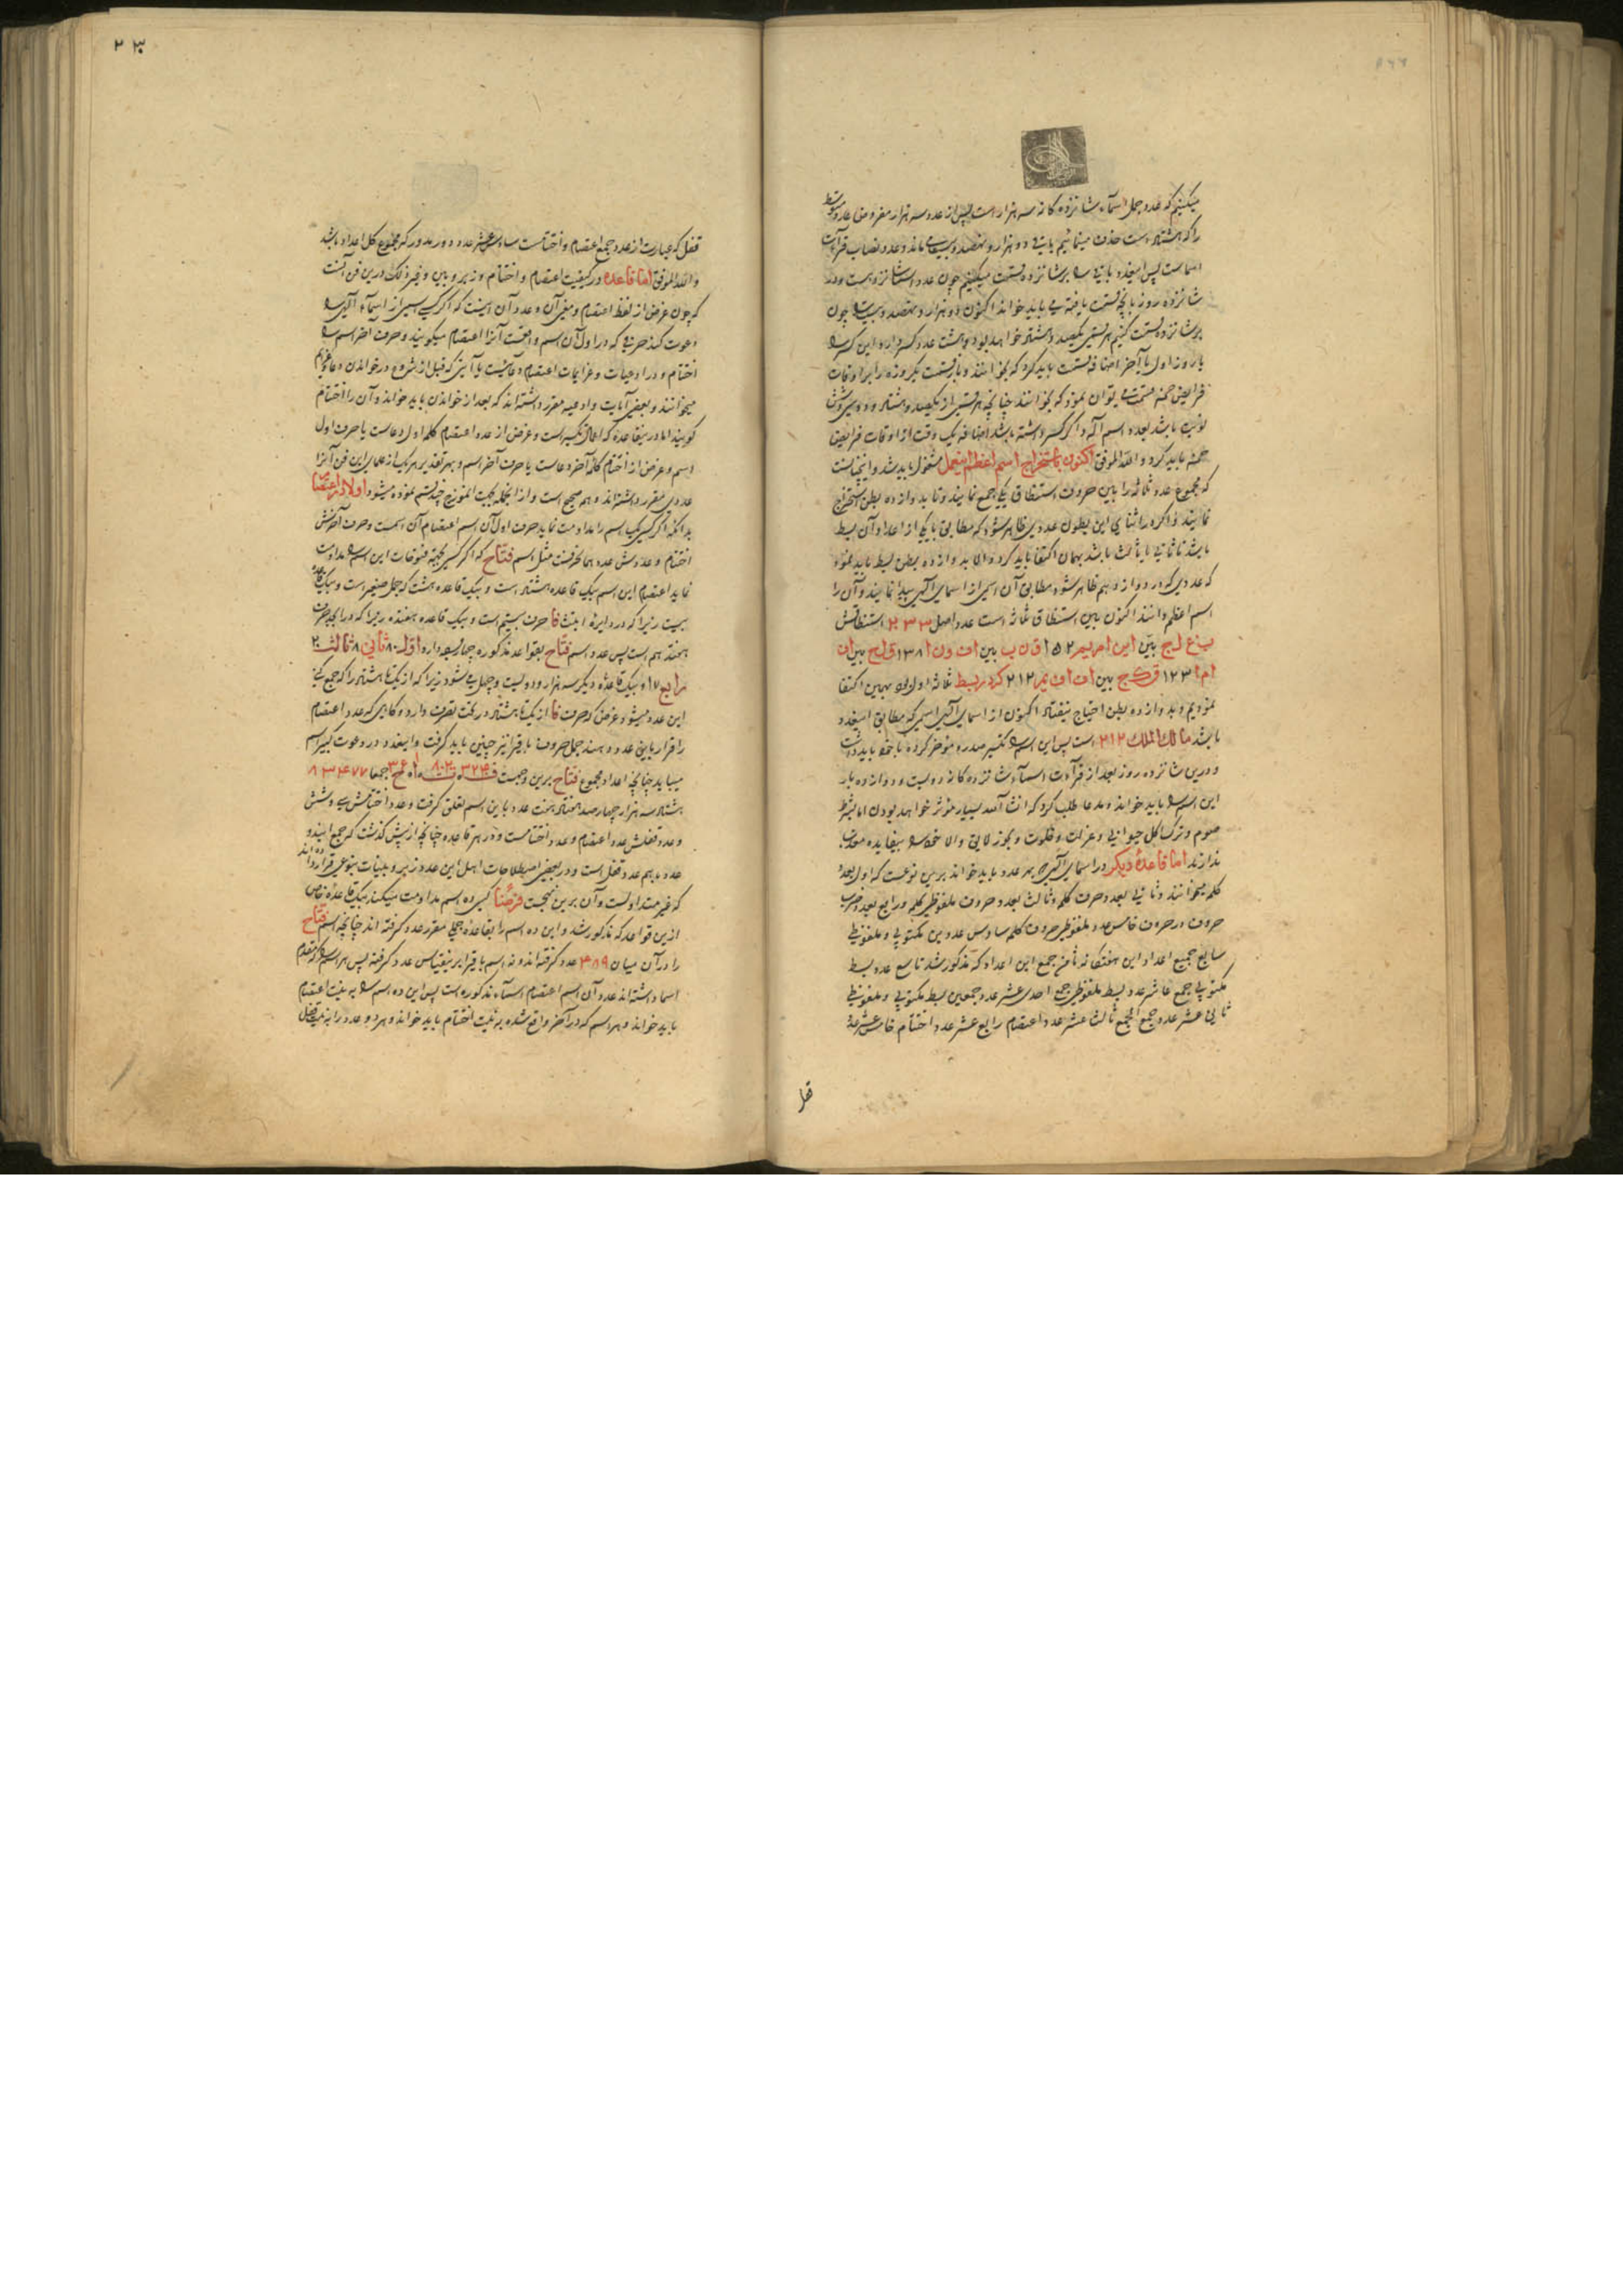 میکنیم که عدد جمل اسماء شانزده کانه سه هزار است پس از عدد سه هزار مفروض عدد متوسط
را که هشتاد است حذف مینمائیم باقی دو هزار و نهصد و بیست ماند و عدد نصاب قرآءت
اسما است پس اینعدد باقی را بر شانزده قسمت میکنیم چون عدد اسما شانزده است و در
شانزده روز بانچه قسمت یافته می باید خواند اکنون دو هزار و نهصد و بیست را چون
بر شانزده قسمت کنیم هر قسمتی یکصد و هشتاد و دو خواهد بود و هشت عدد کسر دارد و این کسر را
یا روز اول یا آخر اضافه قسمت باید کرد که بخوانند و باز قسمت یکروزه را بر اوقات
فرایض خمسه قسمت میتوان نمود که بخوانند چنانچه هر قسمی از یکصد و هشتاد و دو سی و شش
نوبت باشد بعدد اسم آله و اگر کسر داشته باشد اضافه یک وقت از اوقات فرایض
خمسه باید کرد و الله الموفق اکنون باستخراج اسم اعظم اینعمل مشغول باید شد و اینچنانست
که مجموع عدد ثلاثه را بین حروف استنطاق یکی جمع نمایند و تا به دوازده بطن استخراج
نمایند و اگر در اثنای این بطون عددی ظاهر شود که مطابق با یکی از اعداد آن بسط
باشد تا ثانی یا ثالث باشد بهمان اکتفا باید کرد و الا به دوازده بطن بسط باید نمود
که عددی که در دوازدهم ظاهر شود مطابق آن اسمی از اسمای الهی پیدا نمایند و آن را
اسم اعظم دانند اکنون بین استنطاق ثلاثه است عدد اصل ۲۳۳ استنطاقش
اما ۱۲۳ ق ک ج بین اف اف یم ۲۱۲ کرد بسط ثلاثه اول بود بهمین اکتفا
نمودیم و به دوازده بطن احتیاج نیفتاد اکنون از اسمای الهی اسمی که مطابق اینعدد
باشد مالک الملک ۲۱۲ است پس این اسم را تکسیر صدر و مؤخر کرده با خود باید داشت
و درین شانزده روز بعد از قرآءت اسمآء شانزده کانه دویست و دوازده بار
این اسم را باید خواند و مدعا طلب کرد که انشآالله بسیار مؤثر خواهد بود اما بشرط
صوم و ترک اکل حیوانی و عزلت و خلوت و بخور لایق و الا خود را بیفایده
ندارند اما قاعدهٔ دیکر در اسمای الهی بهر عدد باید خواند برین نوعست که اول بعدد
کلمه میخوانند و ثانی بعدد حرف کلمه و ثالث بعدد حروف ملفوظی کلمه و رابع بعدد ضرب
حروف در حروف خامس عدد ملفوظی حروف کلمه سادس عددین مکتوبی و ملفوظی
سابع جمیع اعداد این هفتکانه ثامن جمع این اعداد که مذکور شد تاسع عدد بسط
مکتوبی جمع عاشر عدد بسط ملفوظی جمع احدی عشر عدد جمعین بسط مکتوبی و ملفوظی
ثانی عشر عدد جمع الجمع ثالث عشر عدد اعتصام رابع عشر عدد اختتام خامس عشر عدد
قفل
قفل که عبارت از عدد جمع اعتصام و اختتامست سادس عشر عدد دور مدور که مجموع کل اعداد باشد
والله الموفق اما قاعده در کیفیت اعتصام و اختتام و زبر و بین و غیر ذلک درین فن آنست
که چون غرض از لفظ اعتصام و معنی آن و عدد آن اینست که اگر کسی اسمی از اسمآء الهی را
دعوت کند حرفی که در اول آن اسم واقعست آنرا اعتصام میکویند و حرف آخر اسم را
اختتام و در ادعیات و عزایمات اعتصام دعائیست یا آیتی که قبل از شروع در خواندن دعا و عزایم
میخوانند و بعضی آیات و ادعیه مقرر داشته اند که بعد از خواندن باید خواند و آن را اختتام
کویند اما درینقاعده که اعمال تکسیر است و غرض از عدد اعتصام کلمه اول دعاست یا حرف اول
اسم و غرض از اختتام کلمهٔ آخر دعاست یا حرف آخر اسم و بهر تقدیر هر یک از علمای این فن آنرا
عددی مقرر داشته اند و هم صحیح است و از انجمله بجهت انموزج چند قسم نموده میشود اولا در اعتصام
بدانکه اگر کسی یک اسم را مداومت نماید حرف اول آن اسم اعتصام آن اسمست و حرف آخرش
اختتام و عددش عدد همان حرفست مثل اسم فتاح که اگر کسی بجهة فتوحات این اسم را مداومت
نماید اعتصام این اسم بیک قاعده هشتاد است و بیک قاعده هشت که جمل صغیر است و بیک قاعده
بیست زیرا که در دایرهٔ ابتث فا حرف بیستم است و بیک قاعده هفده زیرا که در ابجد حرف
هفتدهم است پس عدد اسم فتاح بقواعد مذکوره چهار عدد دارد اول ۸۰ ثانی ۸ ثالث ۲۰
رابع ۱۷ و بیک قاعدهٔ دیکر سه هزار و دویست و چهل می شود زیرا که از یک تا هشتاد را که جمع کنی
این عدد میشود غرض که حرف فا از یک تا هشتاد در تحت تصرف دارد و کاهی که عدد اعتصام
را قرار باین عدد دهند جمل حروف باقی را نیز چنین باید کرفت و اینعدد در دعوت کبیر اسم
میباید چنانچه اعداد مجموع فتاح برین وجهست ف ۳۲۴۰ ت ۸۰۲۰۰ ا ۱ ح ۳۶ جمعا ۸۳۴۷۷
هشتاد و سه هزار و چهارصد و هفتاد و هفت عدد باین اسم تعلق کرفت و عدد اختتامش سی و شش
و عدد قفلش عدد اعتصام و عدد اختتامست و در هر قاعده چنانچه از پیش کذشت که جمع این دو
عدد باهم عدد قفل است و در بعضی اصطلاحات اهل این عدد زبر و بینات بنوعی قرار داده اند
که غیر متداولست و آن برین نهجست فرضًا کسی ده اسم مداومت میکند بیک قاعدهٔ خاص
ازین قواعد که مذکور شد و این ده اسم را بقاعدهٔ جملی مقرر عدد کرفته اند چنانچه اسم فتاح
را در آن میان ۴۸۹ عدد کرفته اند و نه اسم باقی را برینقیاس عدد کرفته پس هر اسم را که مقدم
اسما داشته اند عدد آن اسم اعتصام اسمآء مذکوره است پس این ده اسم را به نیت اعتصام
باید خواند و هر اسم که در آخر واقع شده به نیت اختتام باید خواند و هر دو عدد را به نیت قفل